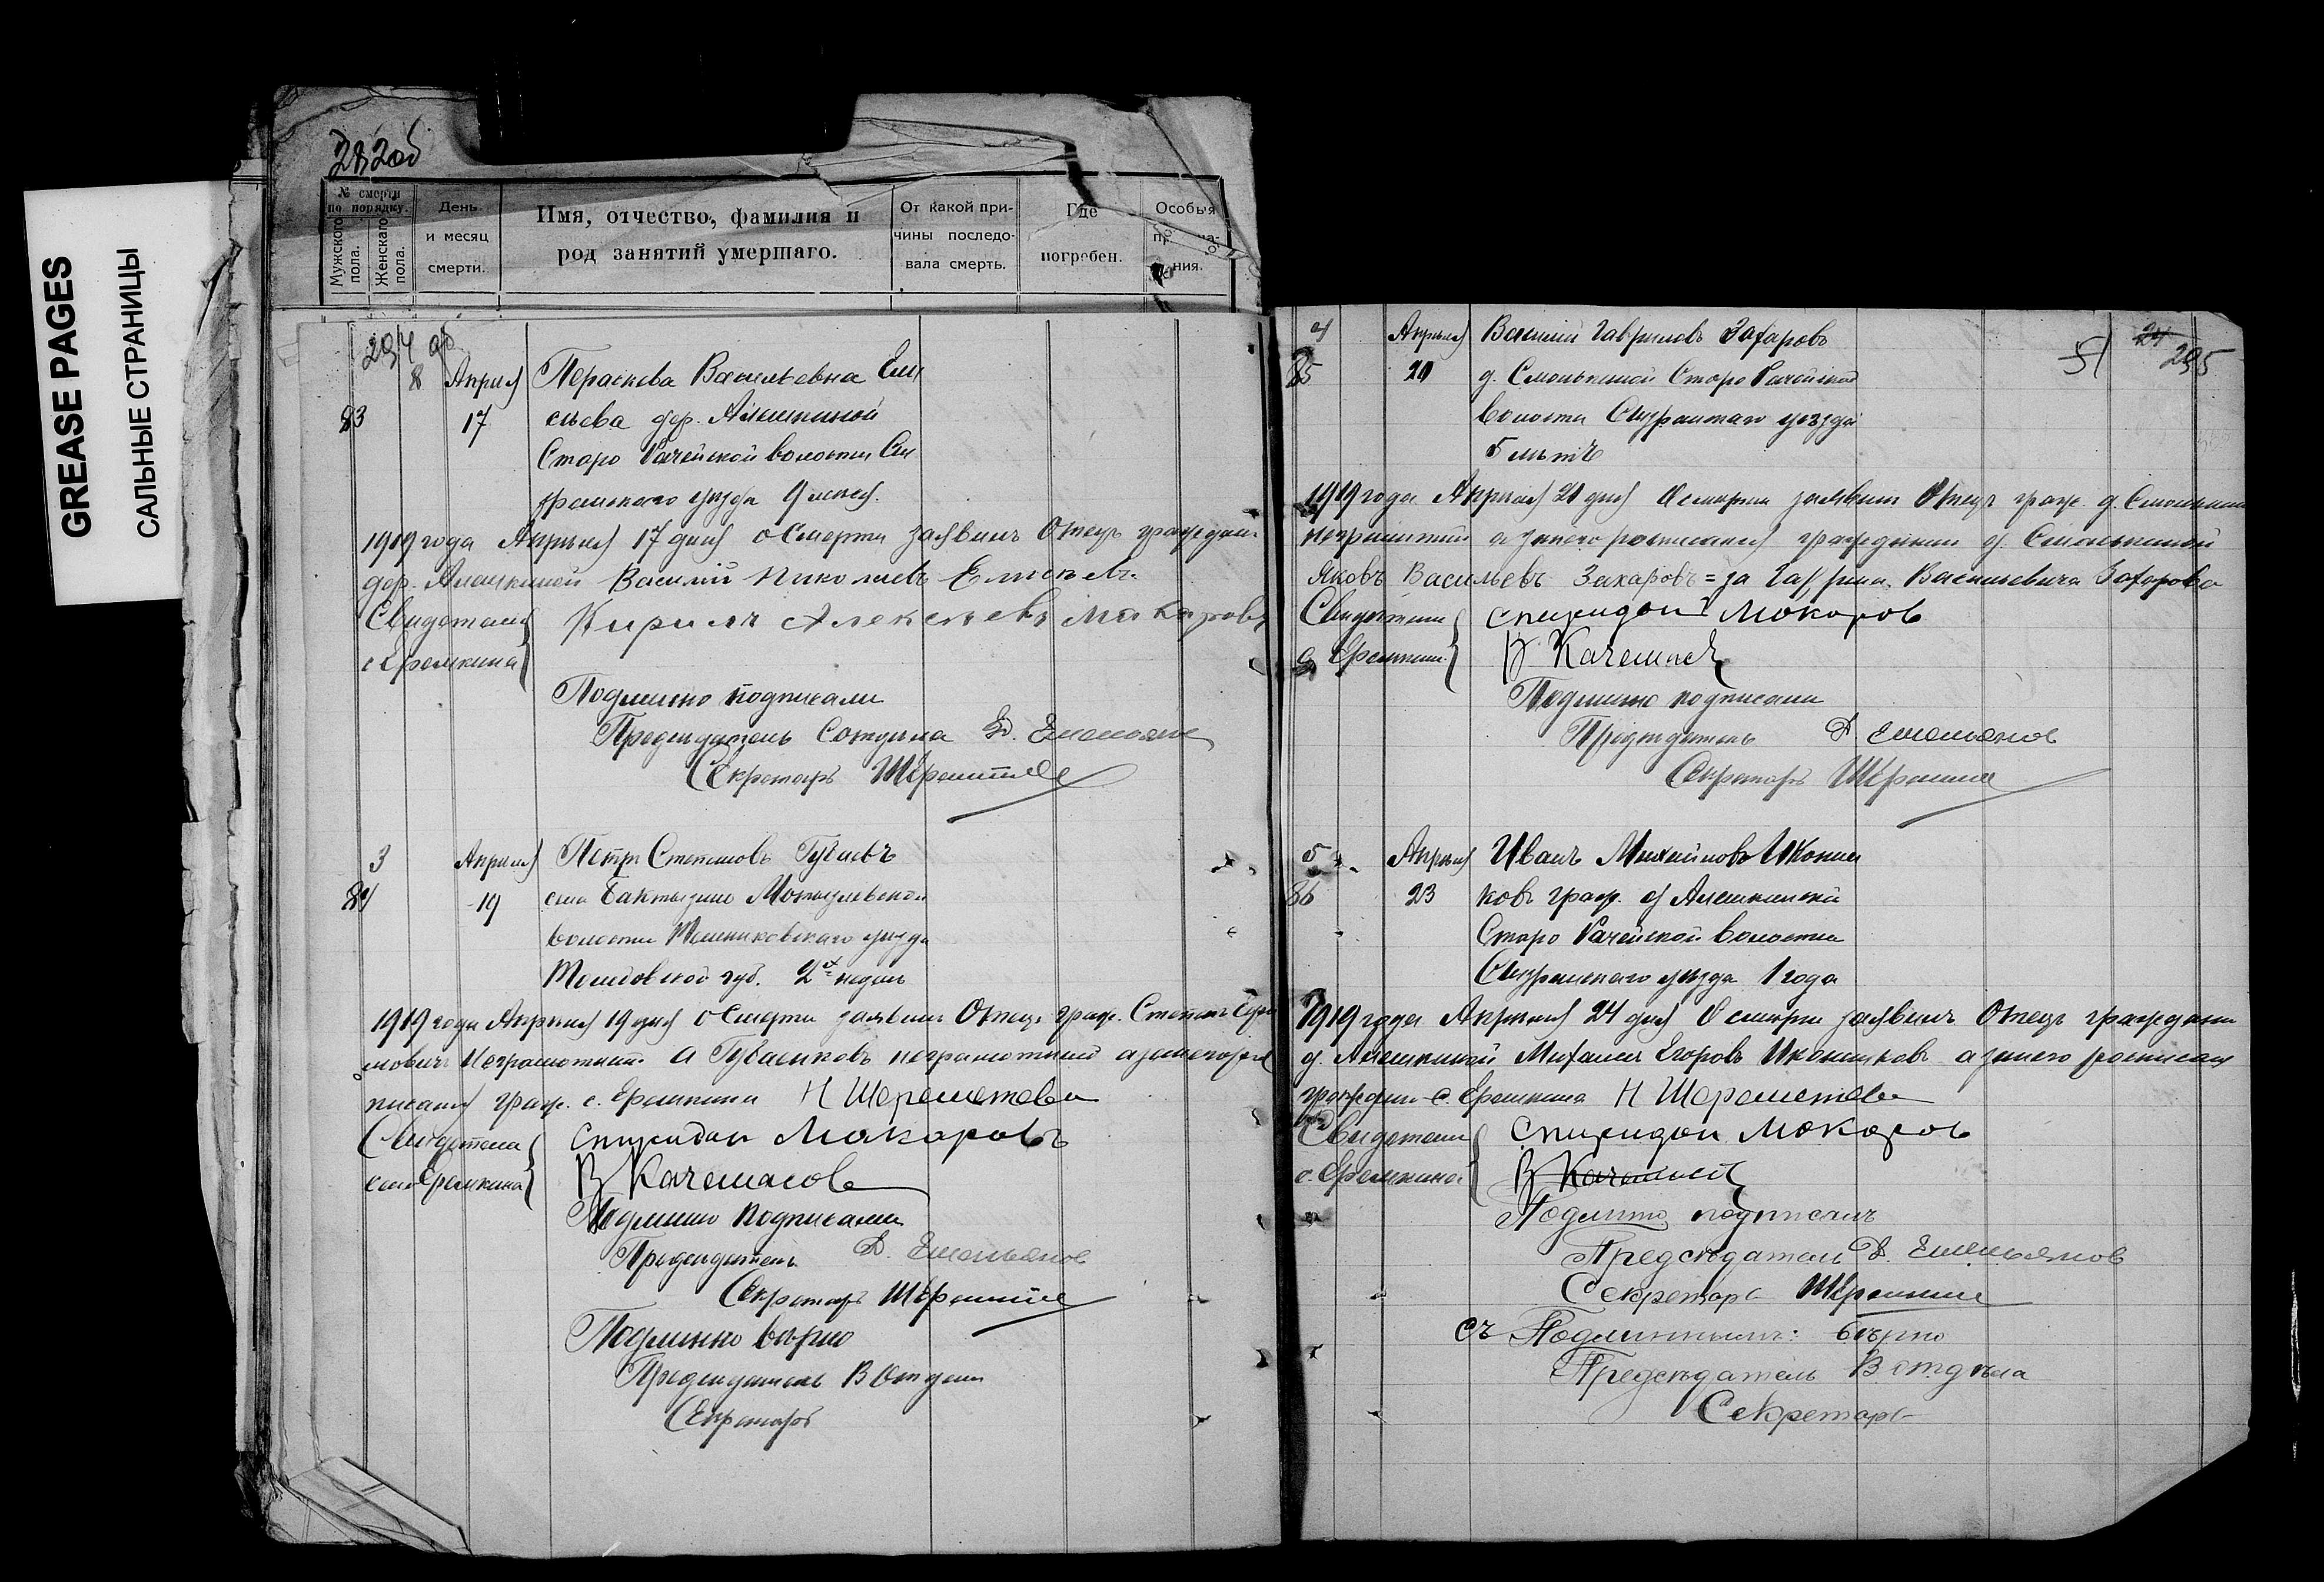 GREASE PAGES
САЛЬНЫЕ СТРАНИЦЫ
282об
№ смерти по порядку.
Мужского пола.
Женскаго пола.
День и месяц смерти.
Имя, отчество, фамилия и род занятий умершаго.
От какой причины последовала смерть.
Где погребен.
Особыя
294 об
8 Апреля Параскева Васильевна Ели
83 17 сеева дер. Алешкиной
Старо Рачейской волости Сы
зранского уезда 9 месяц.
1919 года Апреля 17 дня о Смерти заявил Отец граждан
дер. Алешкиной Василий Николаевъ Елисеевъ
Свидетели Кирилъ Алексеевъ Макаровъ
с Еремкина
Подлинно подписали
Председатель Сотдела Д. Емельянов
Секретарь
3 Апреля Петръ Степановъ
84 19 села
волости Темниковскаго уезда
Тамбовской губ. 2х недель
1919 года Апреля 19 дня о Смерти заявилъ Отец граж. Степан
неграмотный а за него рос
писался граж. с. Еремкина Н Шереметова
Свидетели Спиридон Макаровъ
село Еремкина В Качемасов
Подлинно подписали
Председатель Д. Емельянов
Секретарь
Подлинно верно
Председатель В Отдела
Секретарь
24
51 295
4 Апреля Василий Гавриловъ Захаровъ
85 20 д. Смолькиной Старо Рачейской
волости Сызранскаго уезда
5 летъ
1919 года Апреля 21 дня О смерти заявил Отецъ граж. д. Смолькино
неграмотный а за него росписался гражданин д. Смолькиной
Яковъ Васильевъ Захаровъ = за Гаврила Васильевича Захарова
Свидетели Спиридон Макаров
с. Еремкин. В Качемасов
Подлинно подписали
Председатель Д Емельянов
Секретарь
5 Апреля Иванъ Михайловъ Иконни
86 23 ковъ граж. д Алешкиной
Старо Рачейской волости
Сызранскаго уезда 1 года
1919 года Апреля 24 дня О смерти заявилъ Отецъ граждани
д. Алешкиной Михаил Егоровъ Иконниковъ а за него росписался
граждан с. Еремкина Н Шереметова
Свидетели Спиридон Макаров
с. Еремкиной В Качемасов
Подлинно подписалъ
Председатель Д. Емельянов
Секретарь
съ Подлиннымъ: верно
Председатель В. отдела
Секретарь